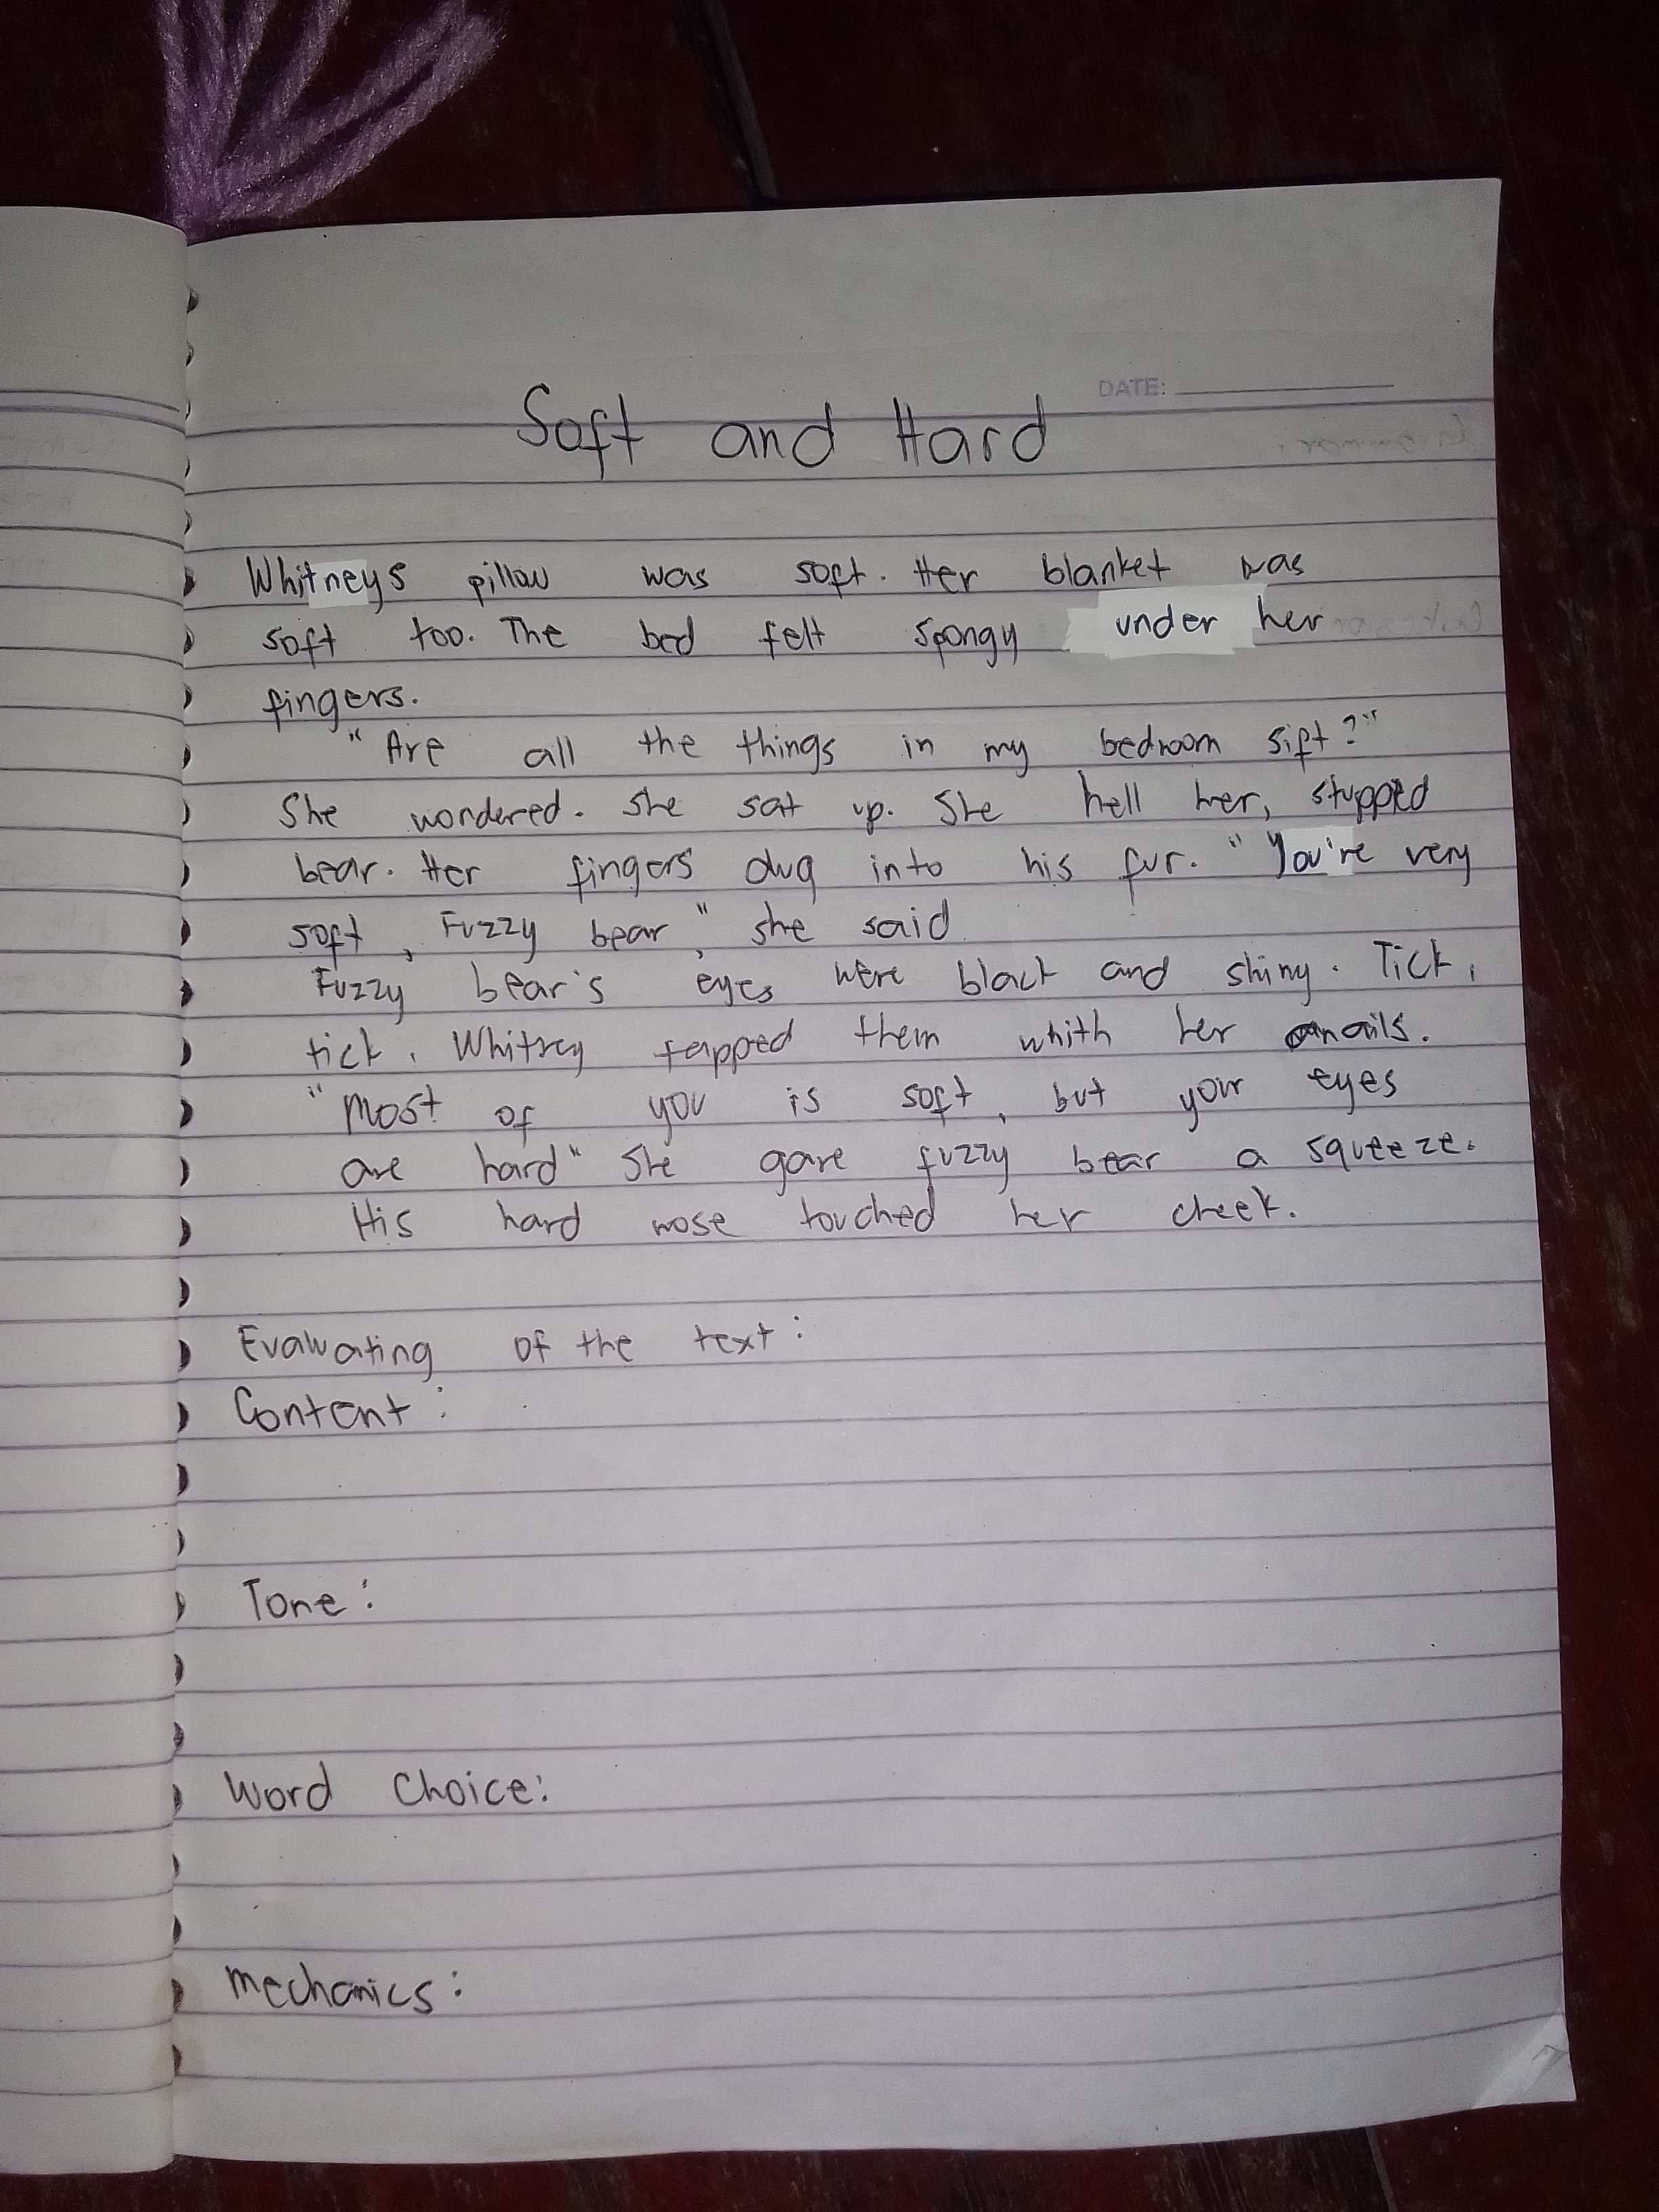 DATE:
Soft and Hard
Whitneys pillow was soft. Her blanket was
soft too. The bed felt spongy under her
fingers.
"Are all the things in my bedroom sift?"
She wondered. She sat up. She hell her, stupped
bear. Her fingers dug into his fur. "You're very
soft, Fuzzy bear," she said
Fuzzy bear's eyes were black and shiny. Tick,
tick, Whitney tapped them whith her nails.
"Most of you is soft, but your eyes
are hard" She gave fuzzy bear a squeeze.
His hard nose touched her cheek.
Evaluating of the text:
Content:
Tone:
Word Choice:
mechanics: